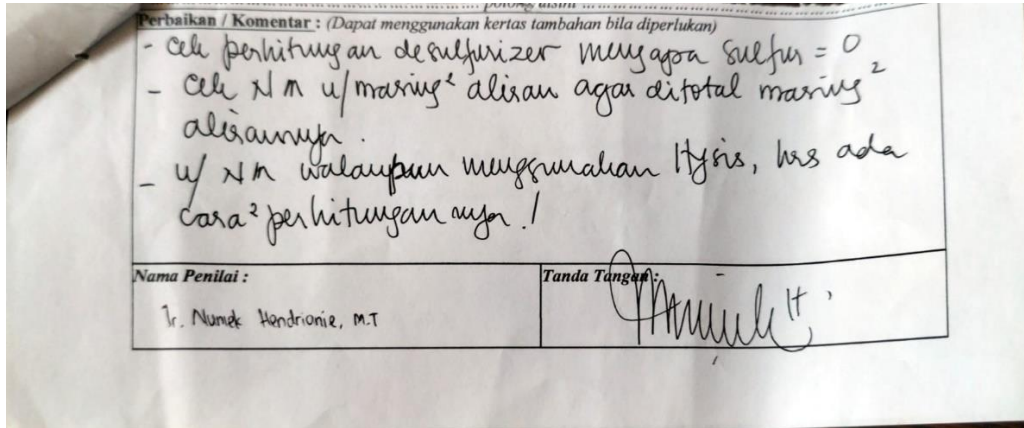 potong disini
Perbaikan / Komentar : (Dapat menggunakan kertas tambahan bila diperlukan)
- cek perhitungan desulfurizer mengapa sulfur = 0
- cek NM u/ masing² aliran agar ditotal masing²
alirannya.
- u/ NM walaupun menggunakan Hysis, hrs ada
cara² perhitungan nya !
Nama Penilai :
Tanda Tangan :
Ir. Nuniek Hendrianie, M.T